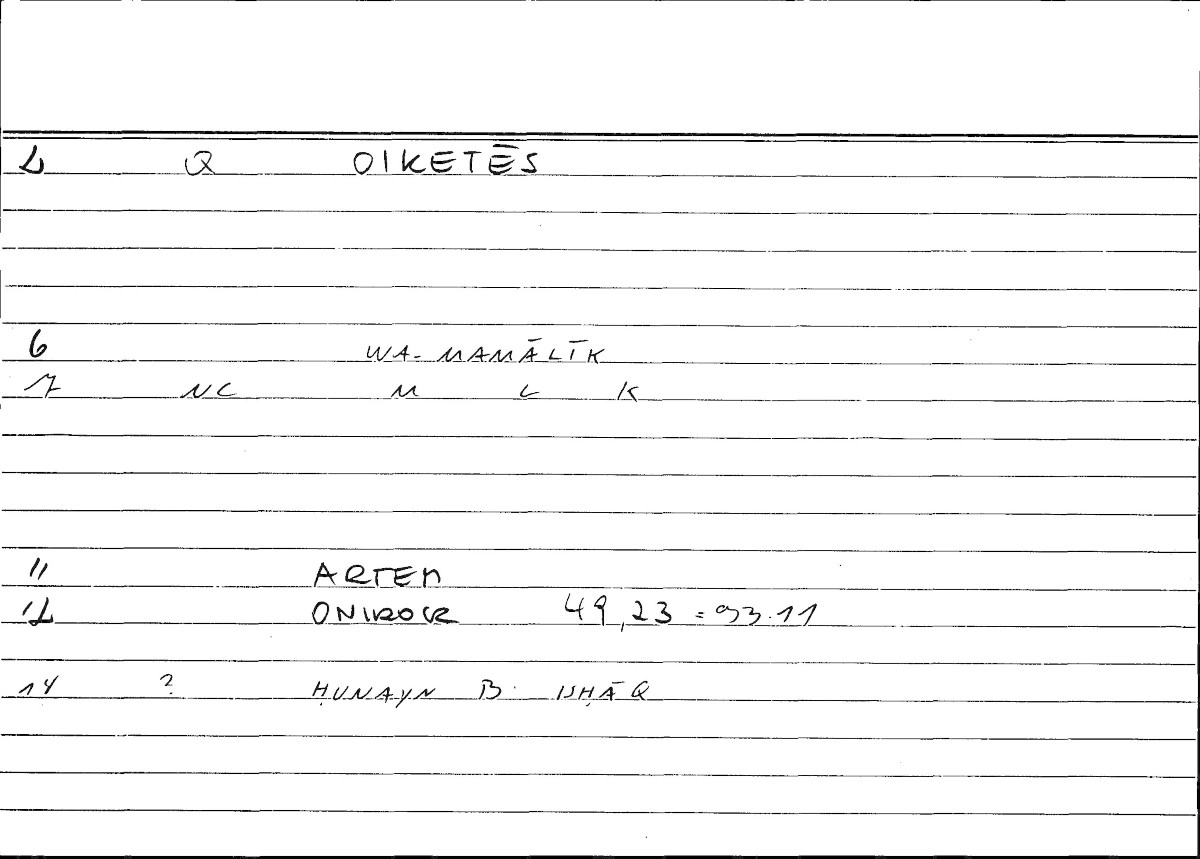 2 Q OIKETĒS
6 WA-MAMĀLĪK
7 NC M L K
11 ARTEM
12 ONIROCR 49,23 = 93.11
14 ? ḤUNAYN B. ISḤĀQ